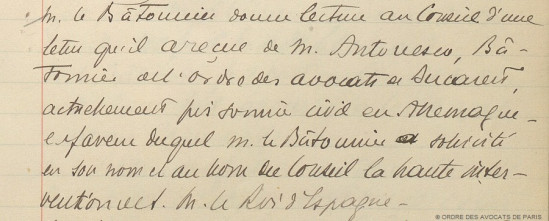 M. le Bâtonnier donne lecture au Conseil d'une
lettre qu'il a reçue de M. Antonesco, Bâ-
tonnier de l'Ordre des avocats de Bucarest,
actuellement prisonnier civil en Allemagne
et faveur duquel M. le Bâtonnier a sollicité
en son nom et au nom du Conseil la haute inter-
vention de S. M. le Roi d'Espagne -
© ORDRE DES AVOCATS DE PARIS